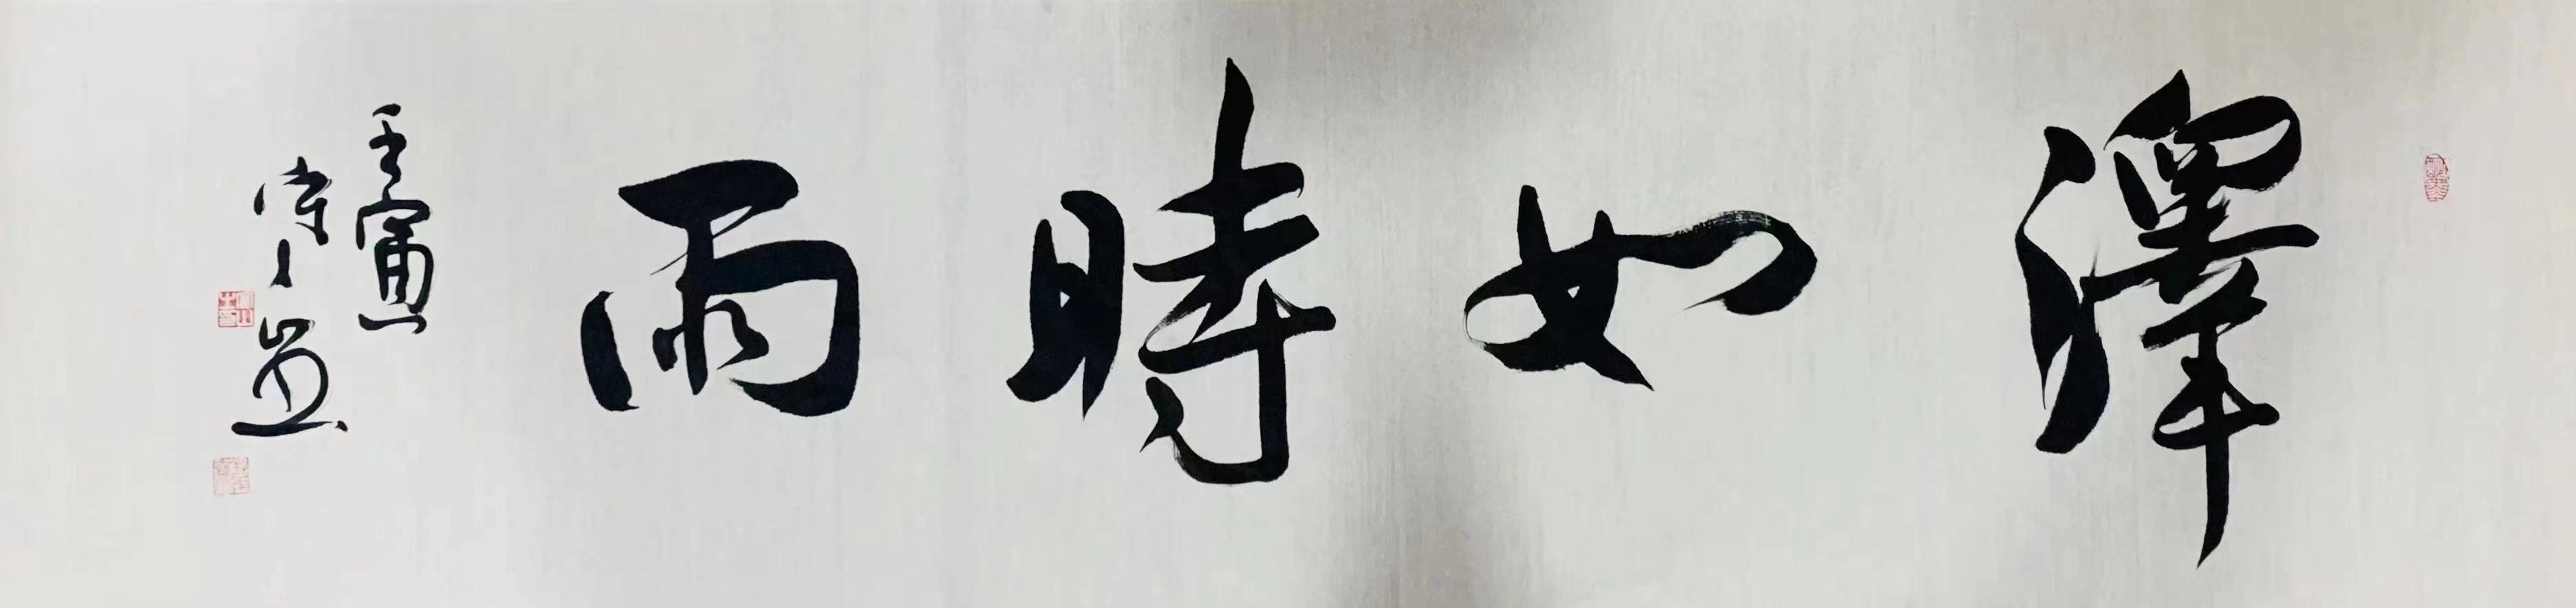 澤如時雨
壬寅